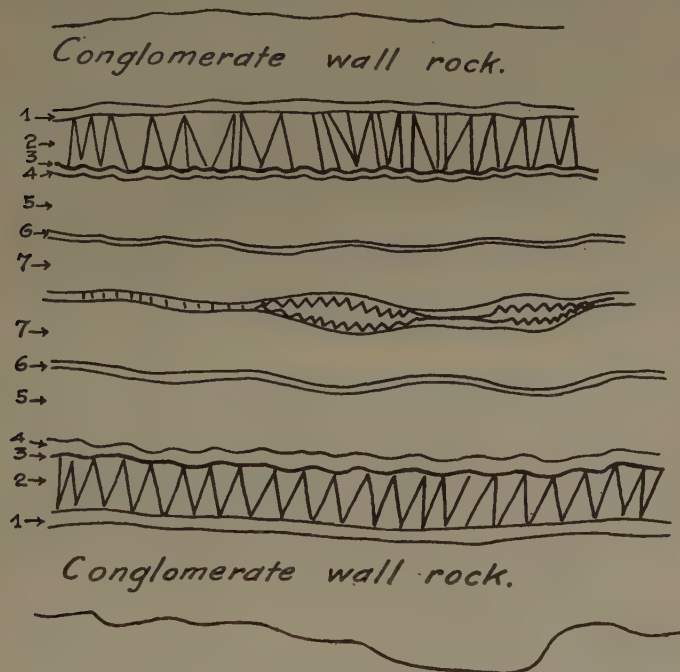 Conglomerate wall rock.
1
2
3
4
5
6
7
7
6
5
4
3
2
1
Conglomerate wall rock.